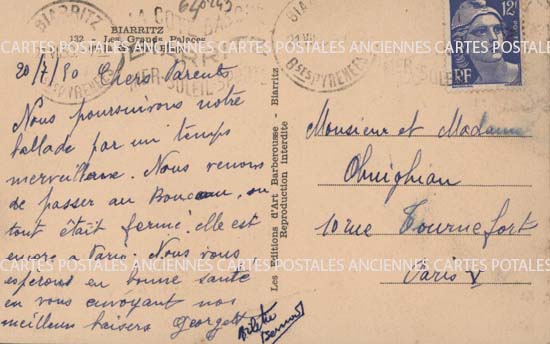 BIARRITZ
132 - Les Grands Palaces
BIARRITZ
Bses PYRENEES
MER-SOLEIL
12F
RF
CARTES POSTALES ANCIENNES CARTES POSTALES ANCIENNES CARTES POSTALES
20/7/50 Chers Parents
Nous poursuivons notre
ballade par un temps
merveilleux. Nous venons
de passer au Boucau, ou
tout était fermé. elle est
encore a Paris. Nous vous
esperons en bonne santé
en vous envoyant nos
meilleurs baisers Georgette
Arlette
Bernard
Les Editions d'Art Barberousse - Biarritz
Reproduction Interdite
Monsieur et Madame
10 rue Tournefort
Paris V
CARTES POSTALES ANCIENNES CARTES POSTALES ANCIENNES CARTES POSTALES